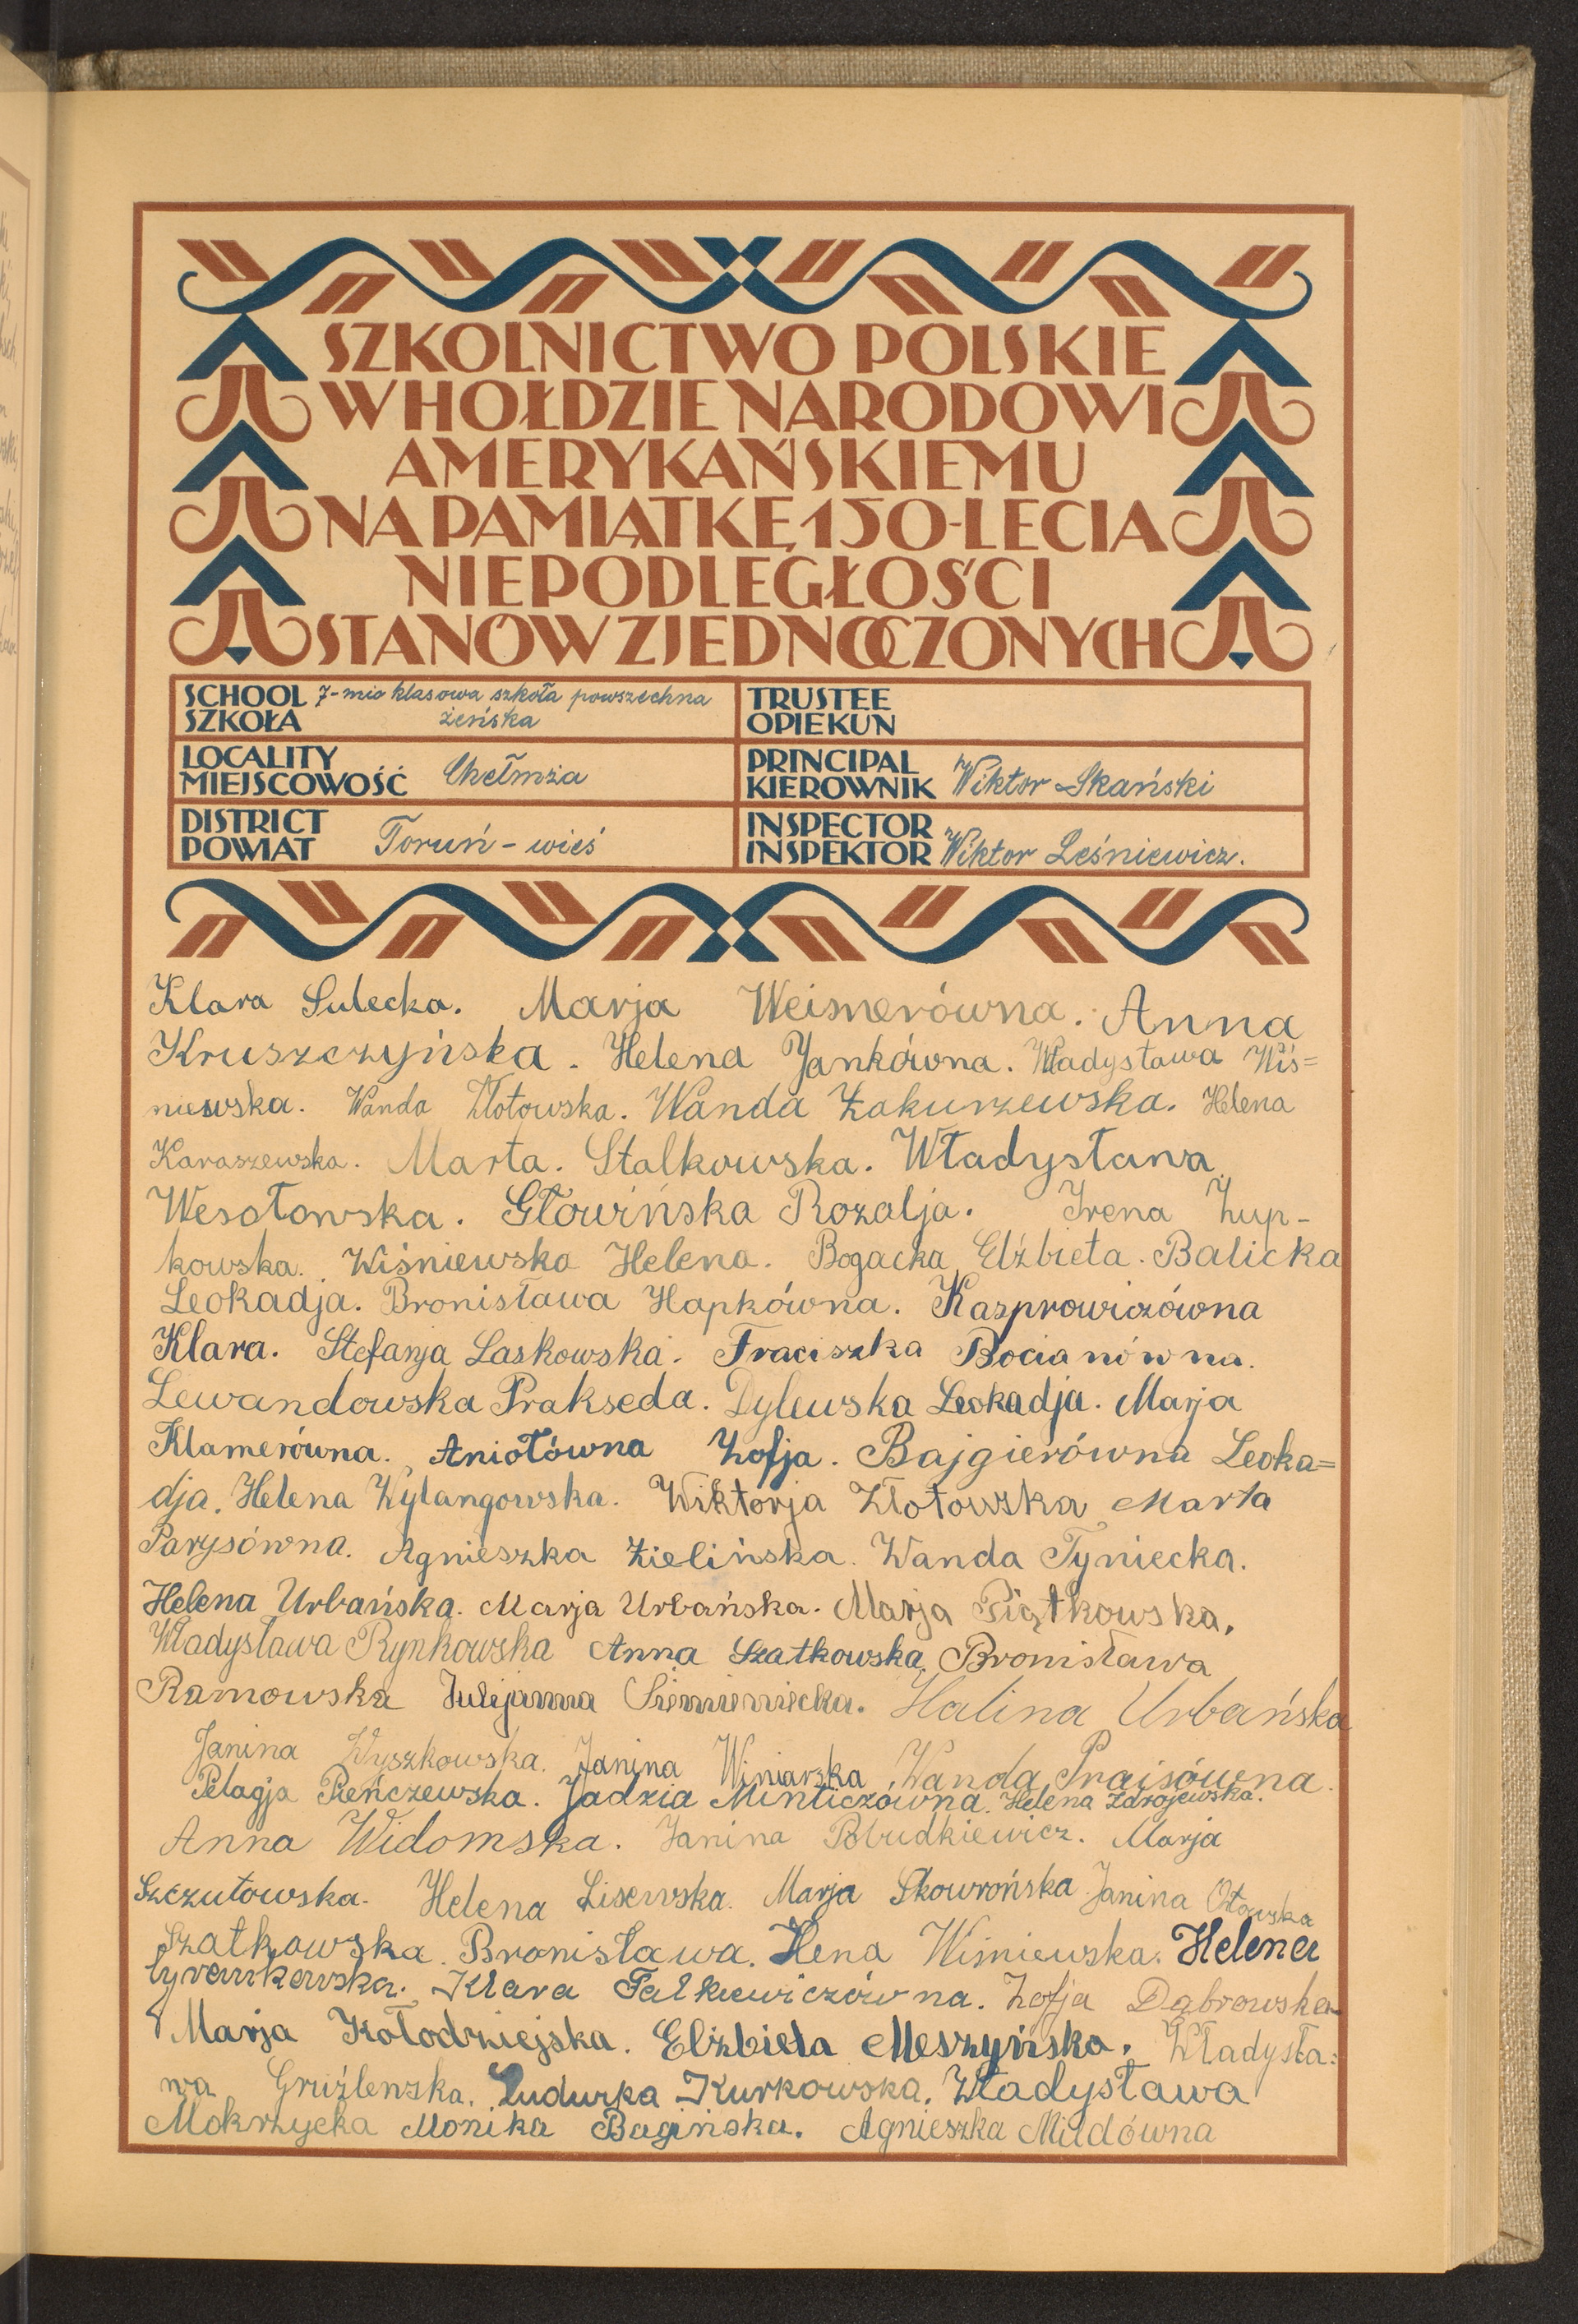 SZKOLNICTWO POLSKIE
W HOŁDZIE NARODOWI
AMERYKAŃSKIEMU
NA PAMIĄTKĘ 150-LECIA
NIEPODLEGŁOŚCI
STANÓW ZJEDNOCZONYCH
SCHOOL 7-mio klasowa szkoła powszechna
SZKOŁA żeńska
TRUSTEE
OPIEKUN
LOCALITY
MIEJSCOWOŚĆ Chełmża
PRINCIPAL
KIEROWNIK Wiktor Skański
DISTRICT
POWIAT Toruń - wieś
INSPECTOR
INSPEKTOR Wiktor Leśniewicz.
Klara Sulecka. Marja Weisnerówna. Anna
Kruszczyńska. Helena Jankówna. Władysława Wiś=
niewska. Wanda Złotowska. Wanda Zakurzewska. Helena
Karaszewska. Marta. Stalkowska. Władysława
Wesołowska. Głowińska Rozalja. Irena Zup-
kowska. Wiśniewska Helena. Bogacka Elżbieta. Balicka
Leokadja. Bronisława Hapkówna. Kasprowiczówna
Klara. Stefanja Laskowska. Fraciszka Bocianówna.
Lewandowska Prakseda. Dylewska Leokadja. Marja
Klamerówna. Aniołówna Zofja. Bajgierówna Leoka=
dja. Helena Wylangowska. Wiktorja Złotowska Marta
Parysówna. Agnieszka Zielińska. Wanda Tyniecka.
Helena Urbańska. Marja Urbańska. Marja Piątkowska,
Władysława Rynkowska Anna Szatkowska Bronisława
Ramowska Julijanna Siemieniecka. Halina Urbańska
Janina Wyszkowska. Janina Winiarska Wanda Praisówna.
Pelagja Pieńczewska. Jadzia Minticzówna. Helena Zdrojewska.
Anna Widomska. Janina Pobudkiewicz. Marja
Szczutowska. Helena Lisewska. Marja Skowrońska Janina Otowska
Szatkowska Bronisława. Hena Wiśniewska. Helena
Klara Falkiewiczówna. Zofja Dąbrowska
Marja Kołodziejska. Elżbieta Meszyńska. Władysła=
wa Gruźlewska. Kurkowska. Władysława
Mokrzycka Monika Bagińska. Agnieszka Miłdówna